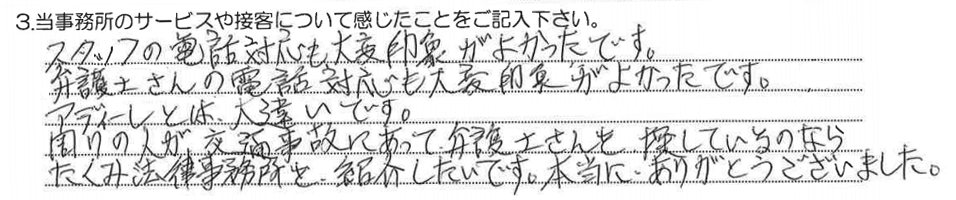 3.当事務所のサービスや接客について感じたことをご記入下さい。
スタッフの電話対応も大変印象がよかったです。
弁護士さんの電話対応も大変印象がよかったです。
アディーレとは、大違いです。
周りの人が、交通事故にあって弁護士さんを探しているのなら
たくみ法律事務所を紹介したいです。本当に、ありがとうございました。